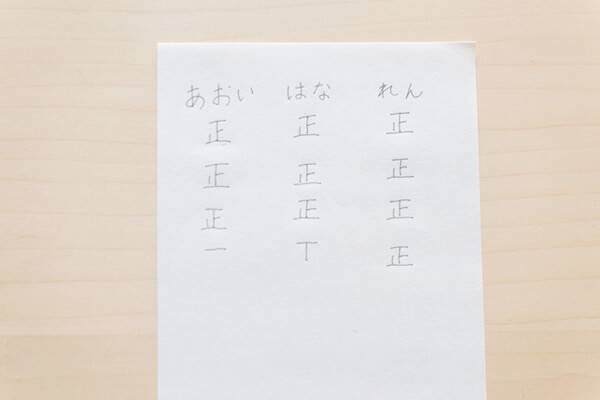 あおい はな れん
正 正 正
正 正 正
正 正 正
一 丅 正